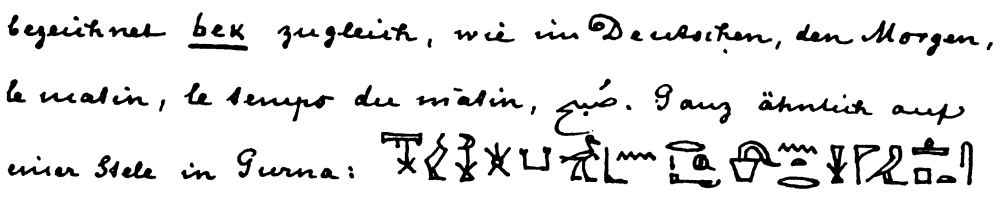 bezeichnet bek zugleich, wie im Deutschen, den Morgen,
le matin, le temps du matin, صُبح. Ganz ähnlich auf
einer Stele in Gurna: